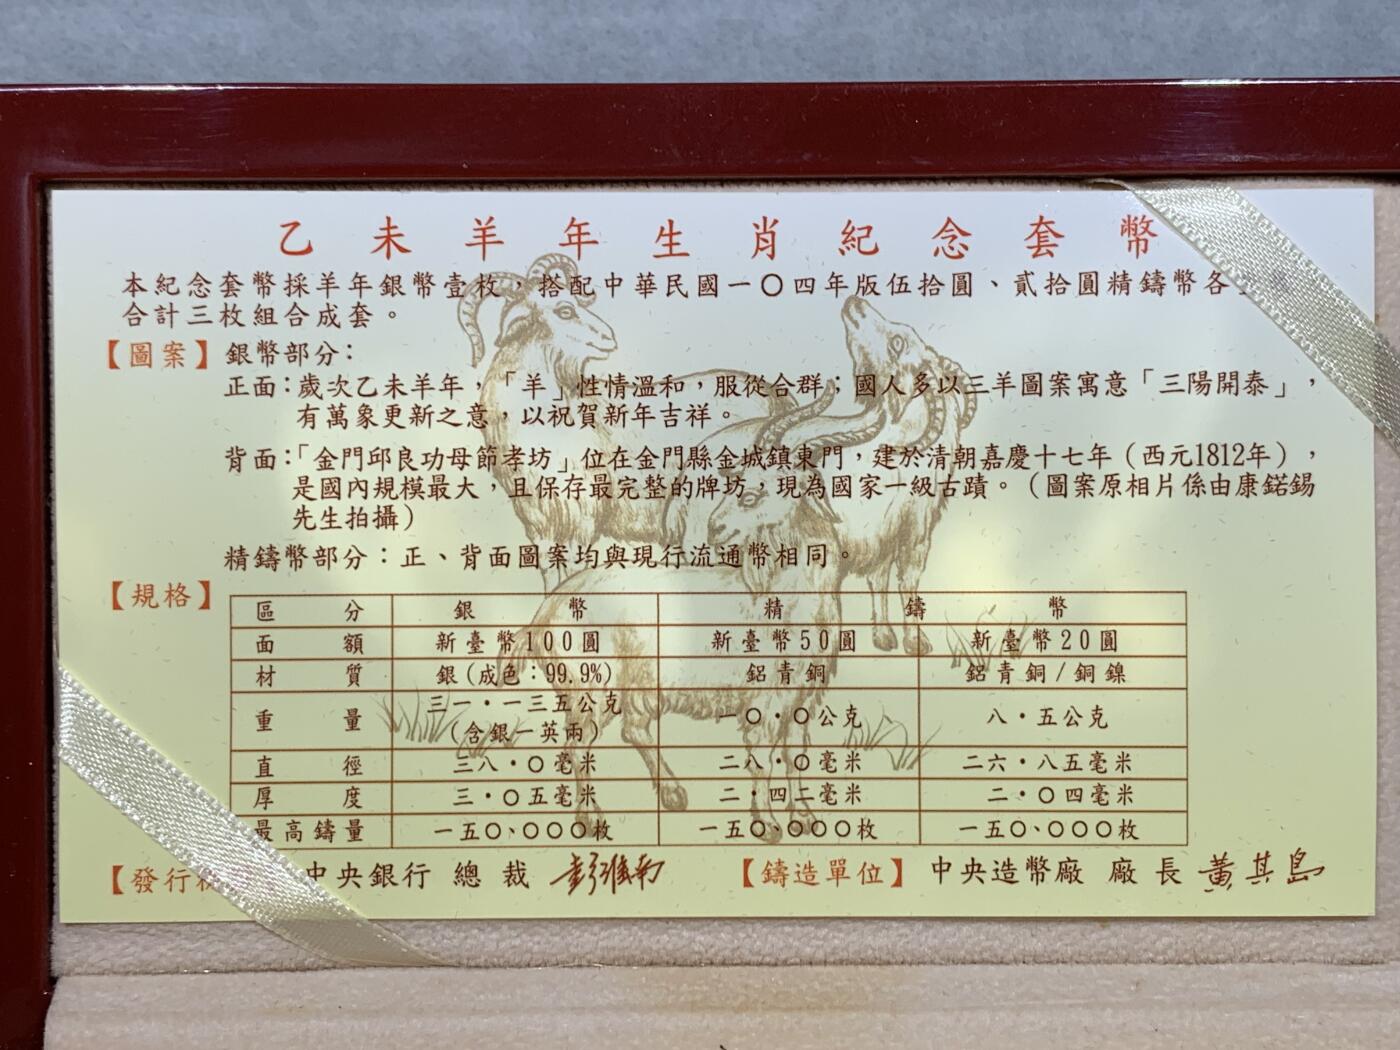 乙未羊年生肖紀念套幣
本紀念套幣採羊年銀幣壹枚，搭配中華民國一〇四年版伍拾圓、貳拾圓精鑄幣各
合計三枚組合成套。
【圖案】銀幣部分：
正面：歲次乙未羊年，「羊」性情溫和，服從合群；國人多以三羊圖案寓意「三陽開泰」，
有萬象更新之意，以祝賀新年吉祥。
背面：「金門邱良功母節孝坊」位在金門縣金城鎮東門，建於清朝嘉慶十七年（西元1812年），
是國內規模最大，且保存最完整的牌坊，現為國家一級古蹟。（圖案原相片係由康鍩錫
先生拍攝）
精鑄幣部分：正、背面圖案均與現行流通幣相同。
【規格】
區分 銀幣 精鑄幣
面額 新臺幣100圓 新臺幣50圓 新臺幣20圓
材質 銀(成色：99.9%) 鋁青銅 鋁青銅/銅鎳
重量 三一・一三五公克（含銀一英兩） 一〇・〇公克 八・五公克
直徑 三八・〇毫米 二八・〇毫米 二六・八五毫米
厚度 三・〇五毫米 二・四二毫米 二・〇四毫米
最高鑄量 一五〇、〇〇〇枚 一五〇、〇〇〇枚 一五〇、〇〇〇枚
【發行 中央銀行 總裁 彭淮南 【鑄造單位】中央造幣廠 廠長 黃其島